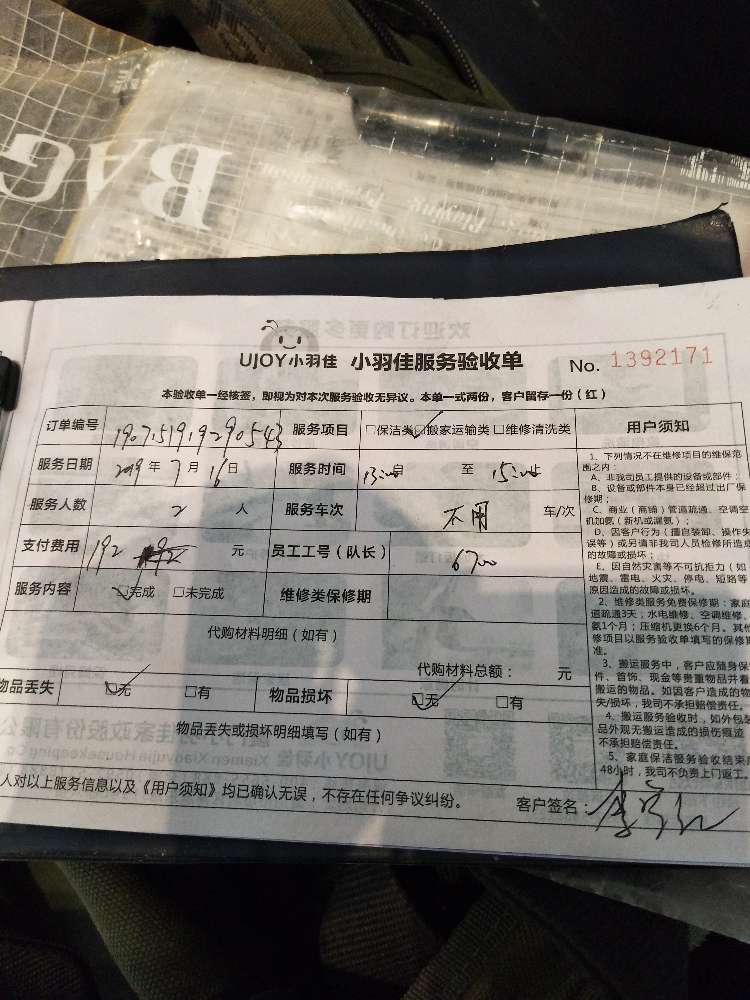 BAG
UJOY小羽佳 小羽佳服务验收单 No. 1392171
本验收单一经核签，即视为对本次服务验收无异议。本单一式两份，客户留存一份（红）
订单编号 190715191929 0543 服务项目 □保洁类 ☑搬家运输类 □维修清洗类
服务日期 2019 年 7 月 16 日 服务时间 13:00 自 至 15:00 止
服务人数 2 人 服务车次 不用 车/次
支付费用 192 元 员工工号（队长） 6700
服务内容 ☑完成 □未完成 维修类保修期
代购材料明细（如有）
代购材料总额： 元
物品丢失 ☑无 □有 物品损坏 ☑无 □有
物品丢失或损坏明细填写（如有）
人对以上服务信息以及《用户须知》均已确认无误，不存在任何争议纠纷。 客户签名：
用户须知
1、下列情况不在维修项目的维保范
围之内：
A、非我司员工提供的设备或部件；
B、设备或部件本身已经超过出厂保
修期；
C、商业（商铺）管道疏通、空调空
机加氨（新机或漏氨）；
D、因客户行为（擅自装卸、操作失
误等）或另请非我司人员检修所造成
的故障或损坏；
E、因自然灾害等不可抗拒力（如
地震、雷电、火灾、停电、短路等
原因造成的故障或损坏。
2、维修类服务免费保修期：家庭
道疏通3天；水电维修、空调维修、
氨1个月；压缩机更换6个月。其他
修项目以服务验收单填写的保修期
准。
3、搬运服务中，客户应随身保
件、首饰、现金等贵重物品并看
搬运的物品。如因客户造成的物
失/损坏，我司不承担赔偿责任。
4、搬运服务验收时，如外包装
品外观无搬运造成的损伤痕迹
不承担赔偿责任。
5、家庭保洁服务验收结束后
48小时，我司不负责上门返工。